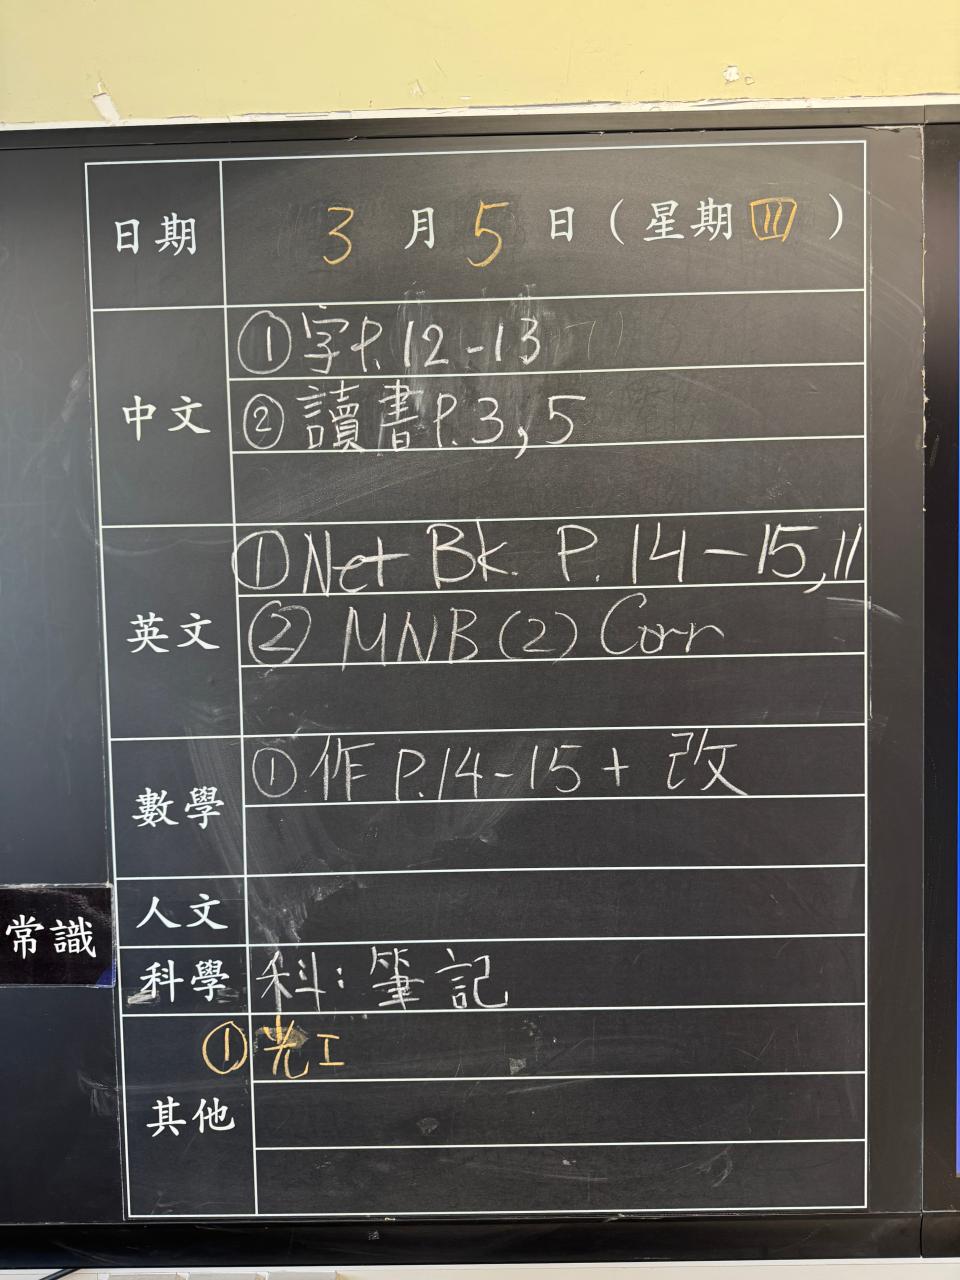 日期 3月5日(星期四)
中文 ①字P.12-13
②讀書P.3,5
英文 ①Net Bk. P.14-15,11
②MNB(2) Corr
數學 ①作P.14-15+改
人文
常識
科學 科:筆記
其他 ①光工